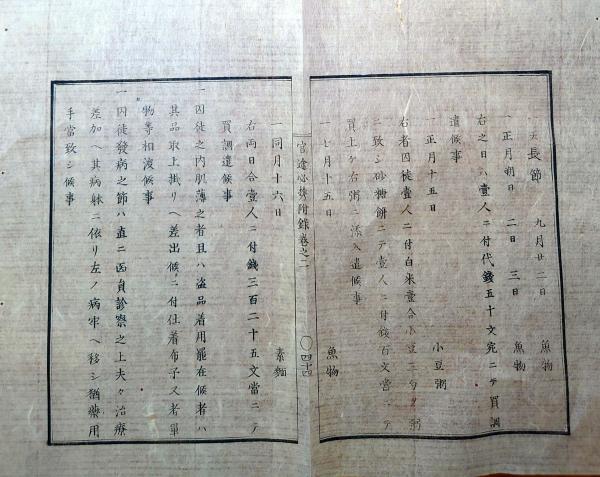 一天長節 九月廿二日 魚物
一正月朔日 二日 三日 魚物
右之日ハ壹人ニ付代錢五十文宛ニテ買調
遣候事
一正月十五日 小豆粥
右者囚徒壹人ニ付白米壹合小豆三勺ヲ粥
ニ致シ砂糖餅ニテ壹人ニ付錢百文當ニテ
買上ケ右粥ニ添入遣候事
一七月十五日 魚物
必携附録卷之二 〇四十四
一同月十六日 素麺
右両日合壹人ニ付錢三百二十五文當ニテ
買調遣候事
一囚徒之内肌薄之者且ハ盗品着用罷在候者ハ
其品取上掛リヘ差出候ニ付仕着布子又者單
物等相渡候事
一囚徒發病之節ハ直ニ醫員診察之上夫々治療
差加ヘ其病躰ニ依リ左ノ病牢ヘ移シ猶藥用
手當致シ候事